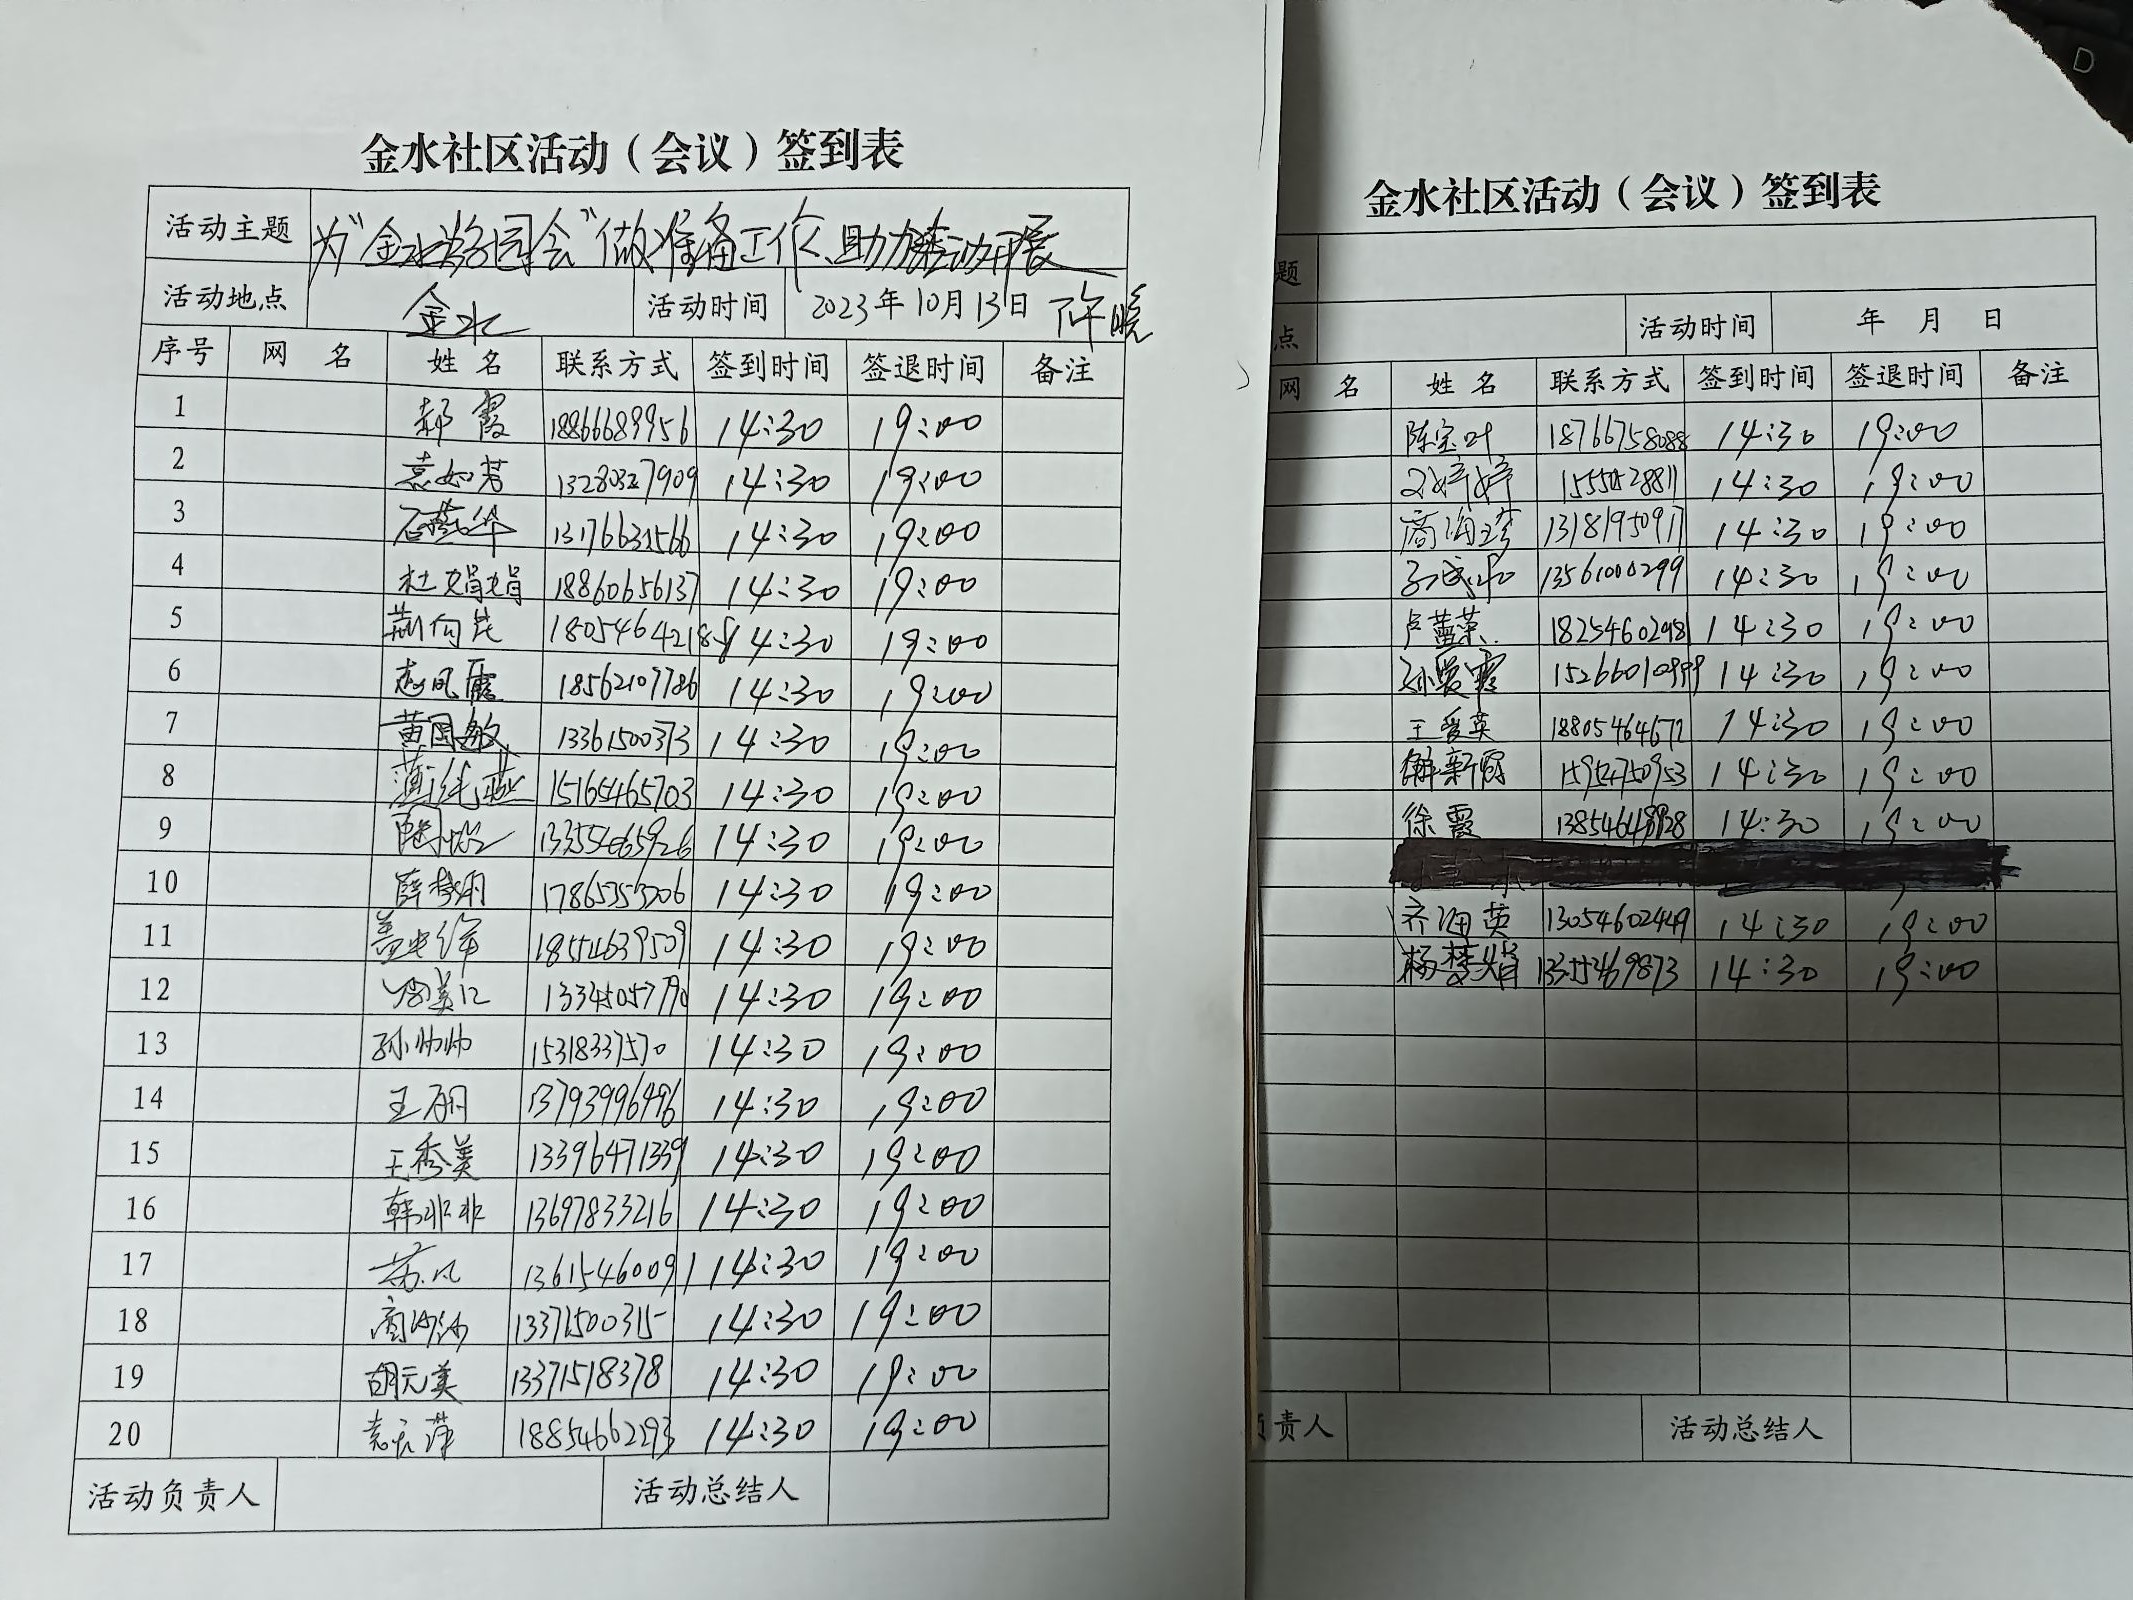 金水社区活动（会议）签到表
活动主题 为“金水游园会”做准备工作、助力活动开展
活动地点 金水 活动时间 2023年10月13日 许晓
序号 网 名 姓 名 联系方式 签到时间 签退时间 备注
1 郝霞 18866689956 14:30 19:00
2 袁如芳 13280327909 14:30 19:00
3 石燕华 14:30 19:00
4 杜娟娟 18860656137 14:30 19:00
5 14:30 19:00
6 赵凤霞 18562107786 14:30 19:00
7 黄国敏 13361500373 14:30 19:00
8 15165465703 14:30 19:00
9 14:30 19:00
10 14:30 19:00
11 18554639509 14:30 19:00
12 13345057790 14:30 19:00
13 孙帅帅 15318337570 14:30 19:00
14 王丽 13793996496 14:30 19:00
15 王秀美 13396471339 14:30 19:00
16 韩非非 13697833216 14:30 19:00
17 苏凡 13615460091 14:30 19:00
18 商沙沙 13371500315 14:30 19:00
19 胡元美 13371518378 14:30 19:00
20 18854662293 14:30 19:00
活动负责人 活动总结人
金水社区活动（会议）签到表
题
点 活动时间 年 月 日
网 名 姓 名 联系方式 签到时间 签退时间 备注
陈宝叶 18766758088 14:30 19:00
婷婷 14:30 19:00
商海 13181950917 14:30 19:00
13561000299 14:30 19:00
卢蕾荣 18254660298 14:30 19:00
孙爱霞 15266010999 14:30 19:00
王爱英 18805464672 14:30 19:00
解新霞 15954750953 14:30 19:00
徐霞 14:30 19:00
齐海英 13054602449 14:30 19:00
杨梦娟 14:30 19:00
负责人 活动总结人
D